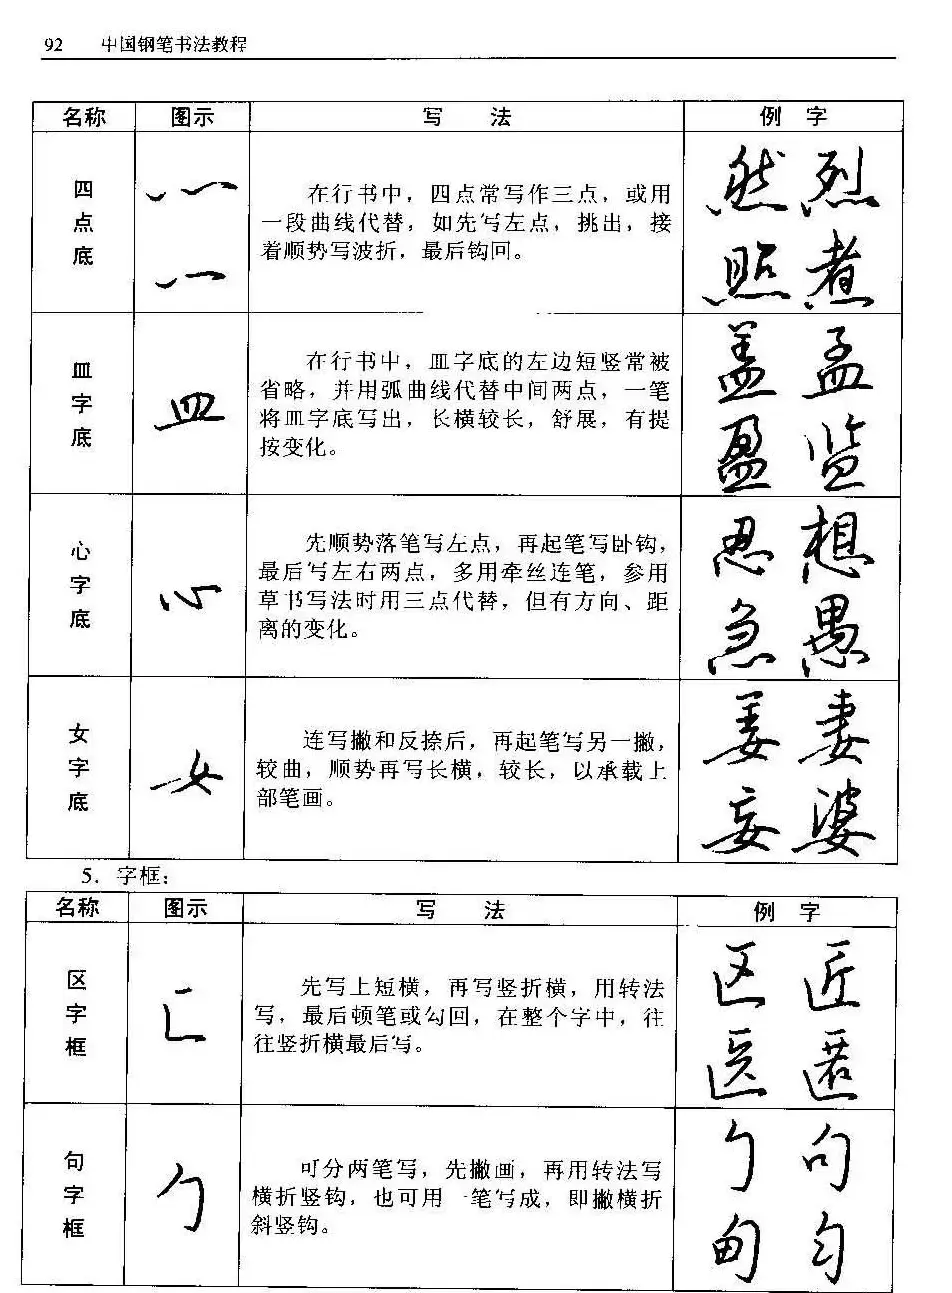 92 中国钢笔书法教程
名称 图示 写 法 例 字
四点底
在行书中，四点常写作三点，或用
一段曲线代替，如先写左点，挑出，接
着顺势写波折，最后钩回。
然 烈
照 煮
皿字底
在行书中，皿字底的左边短竖常被
省略，并用弧曲线代替中间两点，一笔
将皿字底写出，长横较长，舒展，有提
按变化。
盖 孟
盈 监
心字底
心
先顺势落笔写左点，再起笔写卧钩，
最后写左右两点，多用牵丝连笔，参用
草书写法时用三点代替，但有方向、距
离的变化。
忍 想
急 愚
女字底
女
连写撇和反捺后，再起笔写另一撇，
较曲，顺势再写长横，较长，以承载上
部笔画。
姜 妻
妄 婆
5. 字框：
名称 图示 写 法 例 字
区字框
匚
先写上短横，再写竖折横，用转法
写，最后顿笔或勾回，在整个字中，往
往竖折横最后写。
区 匠
医 匿
句字框
勹
可分两笔写，先撇画，再用转法写
横折竖钩，也可用一笔写成，即撇横折
斜竖钩。
勹 句
甸 匀